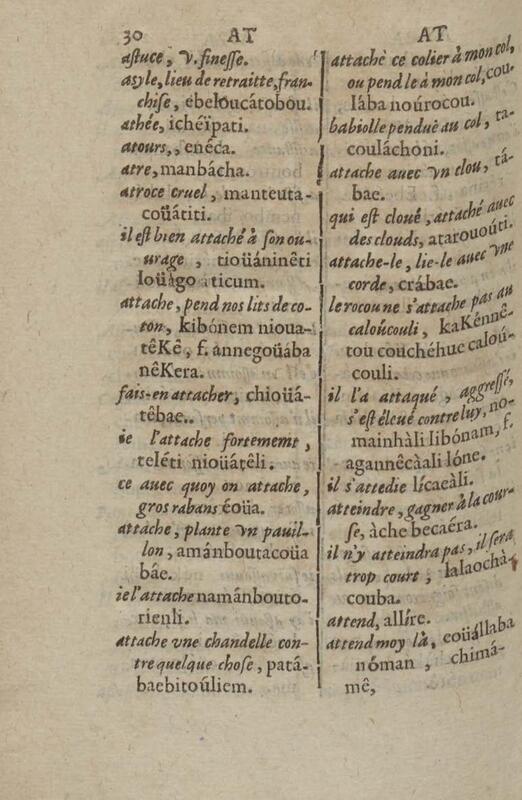 30 AT AT
astuce, v. finesse.
asyle, lieu de retraitte, fran-
chise, ébeloucátobou.
athée, ichéïpati.
atours,, enéca.
atre, manbácha.
atroce cruel, manteuta-
coüátiti.
il est bien attaché à son ou-
urage, tioüáninêti
loüágo aticum.
attache, pend nos lits de co-
ton, kibónem nioua-
têKê, f. ánnegoüába
nêKera.
fais-en attacher, chioüá-
têbae..
ie l'attache fortememt,
teléti nioüátêli.
ce auec quoy on attache,
gros rabans éoüa.
attache, plante vn pauil-
lon, amánboutacoüa
báe.
ie l'attache namánbouto-
rienli.
attache vne chandelle con-
tre quelque chose, patá-
baebitoúliem.
attachè ce colier à mon col,
ou pend le à mon col, cou-
lába noúrocou.
babiolle penduë au col, ta-
couláchoni.
attache auec vn clou, tá-
bae.
qui est cloué, attaché auec
des clouds, atarouoúti.
attache-le, lie-le auec vne
corde, crábae.
le rocou ne s'attache pas au
caloúcouli, kaKénnê-
tou couchéhue caloú-
couli.
il l'a attaqué, aggressé,
s'est éleué contre luy, no-
mainhàli libónam, f.
agannêcàali lóne.
il s'attedie lícaeàli.
atteindre, gagner à la cour-
se, àche becaéra.
il n'y atteindra pas, il sera
trop court, lalaochà-
couba.
attend, allíre.
attend moy là, eoüállaba
nóman, chimá-
mê,